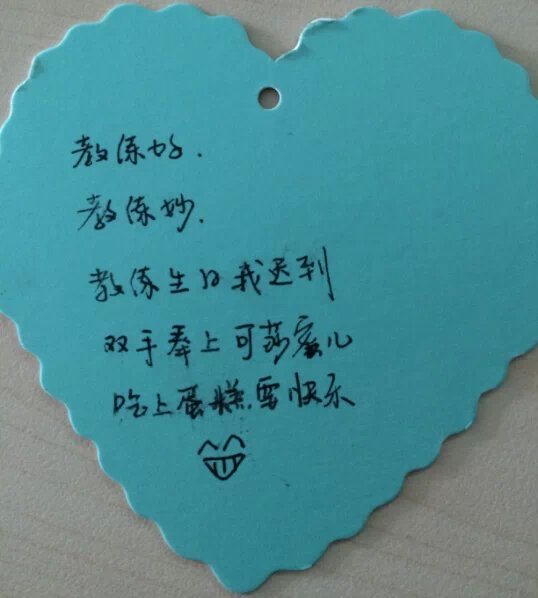 教练好.
教练妙.
教练生日我迟到
双手奉上可莎蜜儿
吃上蛋糕要快乐